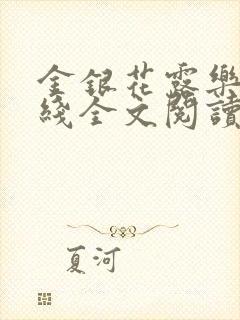 金銀花露樂
綫全文閱讀
夏河